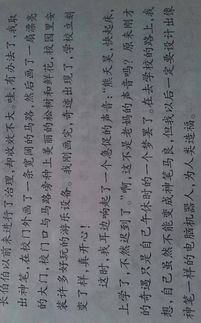 长伯伯以前来进行了治理,却收效不大。哇,有办法了,我取
出神笔,在校门外画了一条宽阔的马路,然后画了一座漂亮
的大门,校门口与马路旁种上美丽的松树和鲜花,校园里安
装许多好玩的游乐设备。我刚画完,奇迹出现了,学校立刻
变了样,真开心!
这时,我耳边响起了一个急促的声音:“熊天昊,快起床,
上学了,不然迟到了。”啊,这不是老妈的声音吗?原来刚才
的奇遇只是自己午休时的一个梦罢了。在去学校的路上,我
想,自己虽然不能变成神笔马良,但我以后一定要设计出像
神笔一样的电脑机器人,为人类造福。